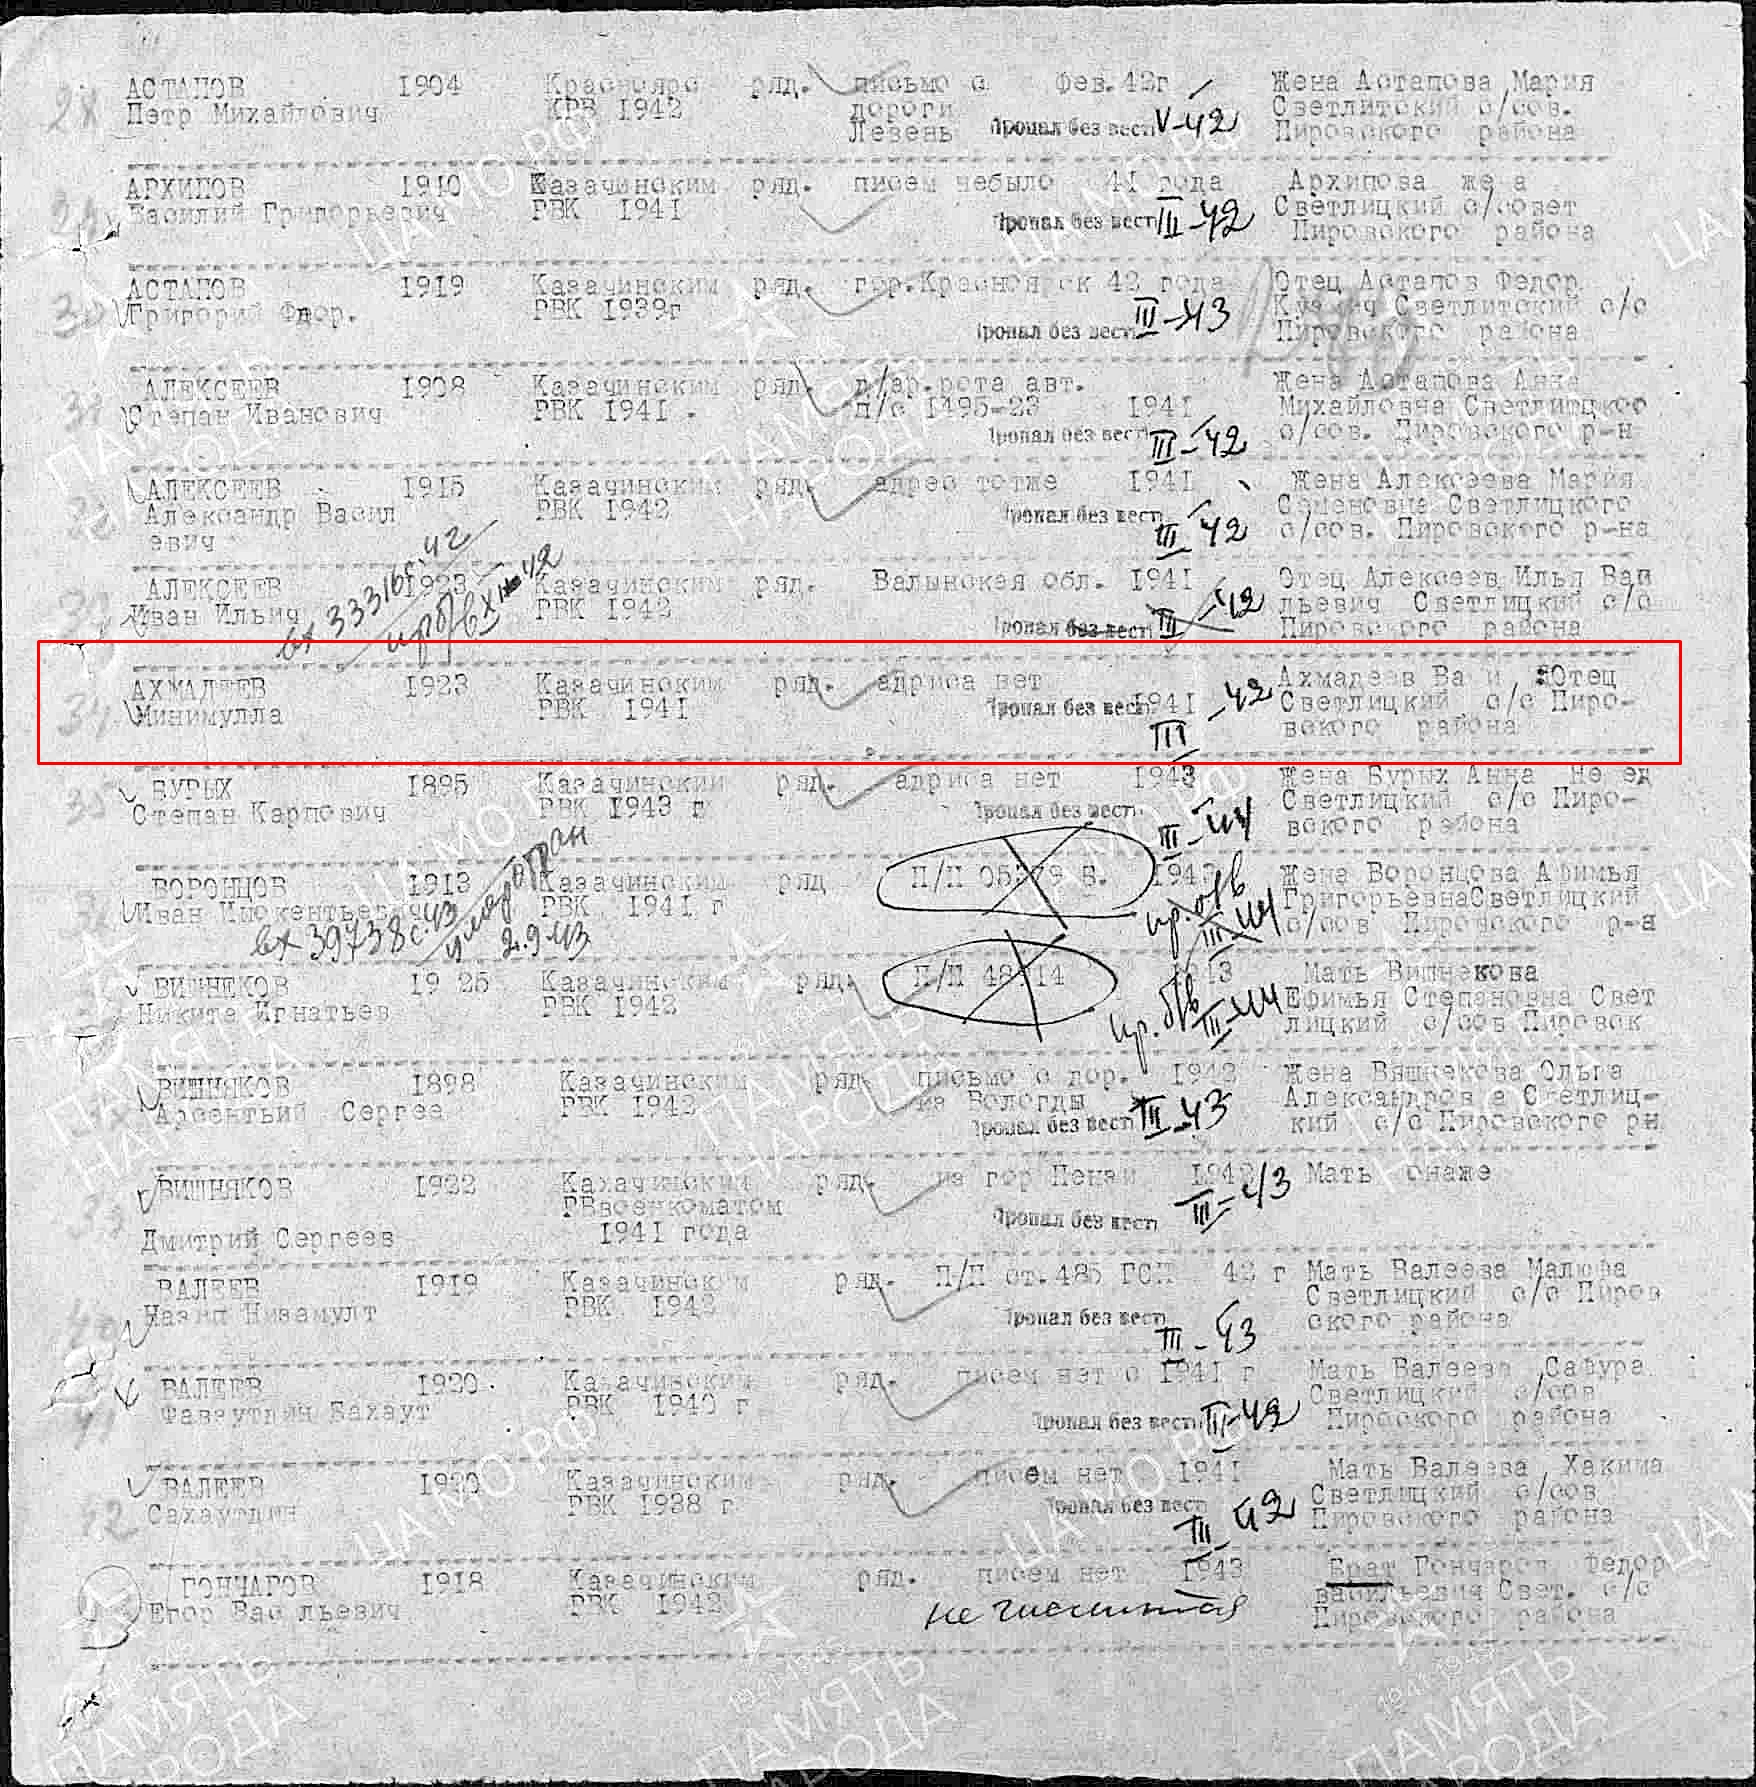 28 АСТАПОВ 1904 Красноярс ряд. письмо с фев. 42г Жена Астапова Мария
Петр Михайлович КРВ 1942 дороги Светлитский с/сов.
Левень Пропал без вести V-42 Пировского района
АРХИПОВ 1910 Казачинским ряд. писем небыло 41 года Архипова жена
Василий Григорьевич РВК 1941 Светлицкий с/совет
Пропал без вести III-42 Пировского района
30 АСТАПОВ 1919 Казачинским ряд. гор.Красноярск 42 года Отец Астапов Федор
Григорий Фдор. РВК 1939г Светлитский с/с
Пропал без вести III-43 Пировского района
31 АЛЕКСЕЕВ 1908 Казачинским ряд. рота авт. Жена Астапова Анна
Степан Иванович РВК 1941. п/с 1495-23 1941 Михайловна Светлитцкое
Пропал без вести III-42 с/сов. Пировского р-н
АЛЕКСЕЕВ 1915 Казачинским ряд. адрес тотже 1941 Жена Алексеева Мария
Александр Васил РВК 1942 Семеновна Светлицкого
евич Пропал без вести III 42 с/сов. Пировского р-на
АЛЕКСЕЕВ 1923 Казачинским ряд. Валынская обл. 1941 Отец Алексеев Илья Ваи
Иван Ильич РВК 1942 льевич Светлицкий с/с
вх 33316с.42 Пропал без вести III-42 Пировского района
АХМАДЕЕВ 1923 Казачинским ряд. адриса нет Ахмадеев Ва и Отец
34 Минимулла РВК 1941 Пропал без вести 1941 III-42 Светлицкий с/с Пиро-
вского района
35 БУРЫХ 1895 Казачинский ряд. адриса нет 1943 Жена Бурых Анна
Степан Карпович РВК 1943 г Светлицкий с/с Пиро-
Пропал без вести III-44 вского района
ВОРОНЦОВ 1913 Казачинским ряд П/П Жена Воронцова Афимья
Иван РВК 1941 г ГригорьевнаСветлицкий
вх 39738с.43 2.9.43 пр. б/в III-44 с/сов Пировского р-а
ВИШНЕКОВ 19 25 Казачинским ряд. П/П Мать Вишнекова
Никита Игнатьев РВК 1942 Ефимья Степановна Свет
пр. б/в III-44 лицкий с/сов Пировск
ВИШНЯКОВ 1898 Казачинским ряд. письмо с дор. 1942 Жена Вяшнекова Ольга
Арсентьий Сергее РВК 1942 из Вологды Светлиц-
Пропал без вести III-43 кий с/с Пировского рн
39 ВИШНЯКОВ 1922 Казачинским ряд. из гор Пензи 1942 Мать онаже
РВвоенкоматом III-43
Дмитрий Сергеев 1941 года Пропал без вести
ВАЛЕЕВ 1919 Казачинским ряд. П/П ст.485 42 г Мать Валеева
40 Низамулт РВК 1942 Светлицкий с/с Пиров
Пропал без вести III-43 ского района
ВАЛЕЕВ 1920. Казачинским ряд. писем нет с 1941 г Мать Валеева Сафура
41 Бахаут РВК 1940 г Светлицкий с/сов
Пропал без вести III-42 Пировского района
ВАЛЕЕВ 1920 Казачинским ряд. писем нет 1941 Мать Валеева Хакима
42 Сахаутдин РВК 1938 г Светлицкий с/сов
Пропал без вести III 42 Пировского района
43 ГОНЧАРОВ 1918 Казачинским ряд. писем нет 1943 Брат Гончаров Федор
Егор Вас льевич РВК 1942 васильевич Свет. с/с
Пировского района
ЦАМО РФ
ПАМЯТЬ НАРОДА
1941-1945